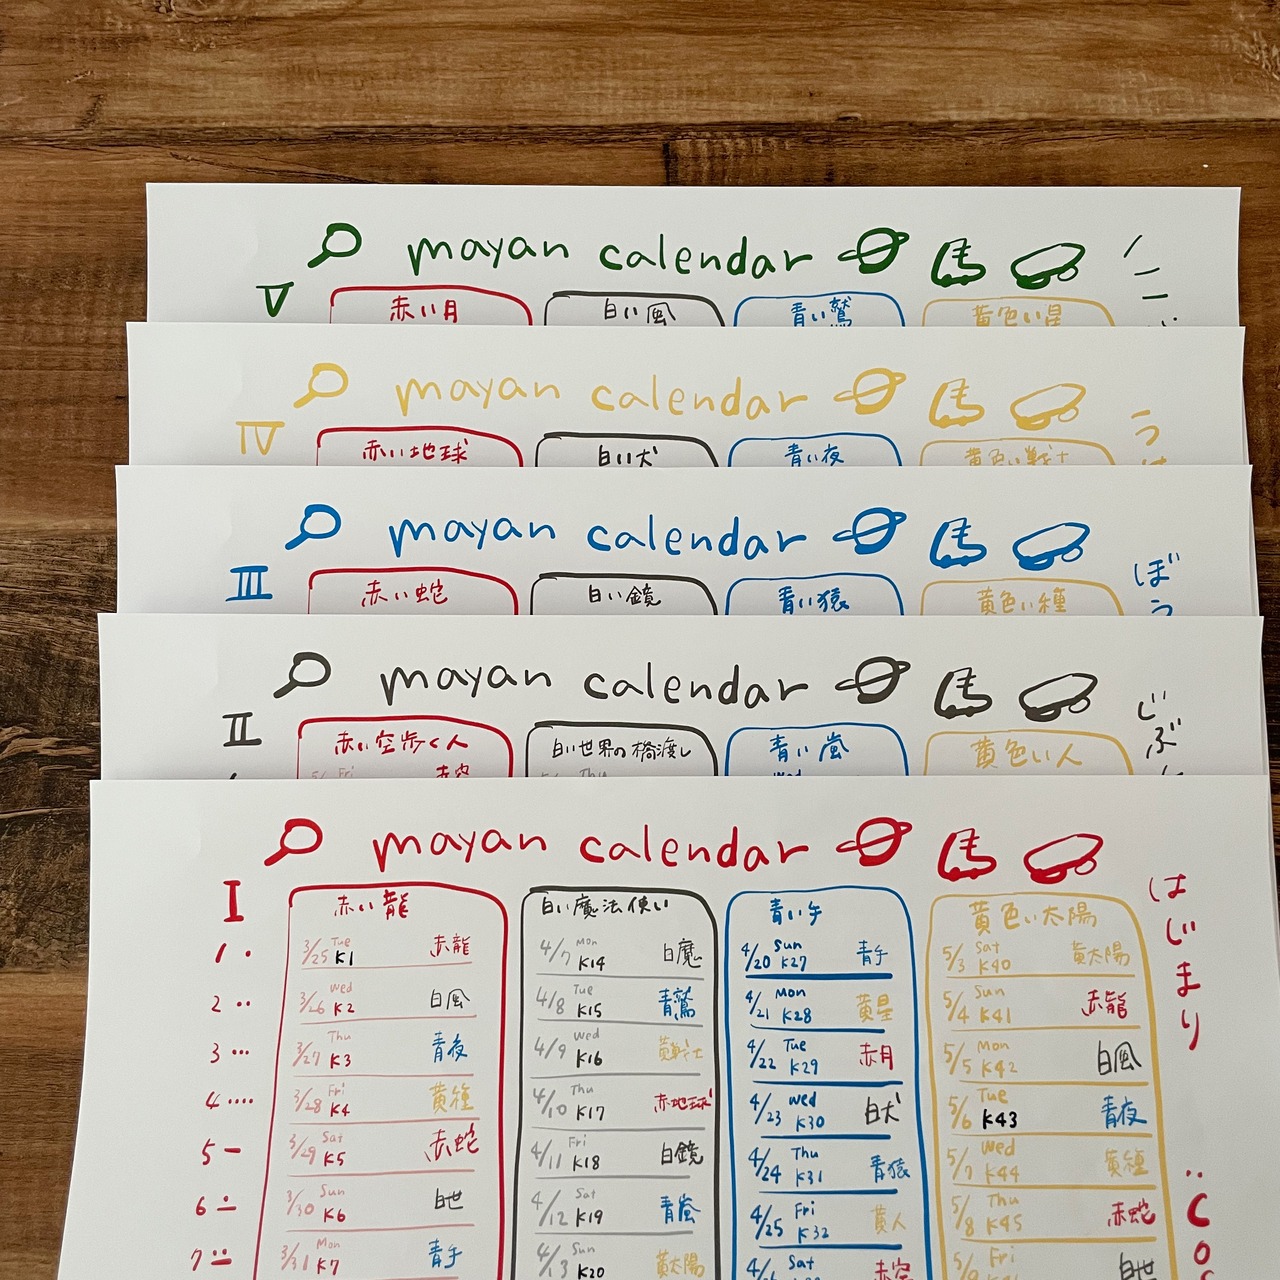 mayan calendar 馬
V 赤い月 白い風 青い鷲 黄色い星
mayan calendar 馬
IV 赤い地球 白い犬 青い夜 黄色い戦士
う
mayan calendar 馬
III 赤い蛇 白い鏡 青い猿 黄色い種
ぼう
mayan calendar 馬
II 赤い空歩く人 白い世界の橋渡し 青い嵐 黄色い人
じぶ
Fri 赤空 Thu Wed
mayan calendar 馬
I 赤い龍 白い魔法使い 青い手 黄色い太陽
はじまり
1 • 3/25 Tue K1 赤龍 4/7 Mon K14 白魔 4/20 Sun K27 青手 5/3 Sat K40 黄太陽
2 •• 3/26 Wed K2 白風 4/8 Tue K15 青鷲 4/21 Mon K28 黄星 5/4 Sun K41 赤龍
3 ••• 3/27 Thu K3 青夜 4/9 Wed K16 黄戦士 4/22 Tue K29 赤月 5/5 Mon K42 白風
4 •••• 3/28 Fri K4 黄種 4/10 Thu K17 赤地球 4/23 Wed K30 白犬 5/6 Tue K43 青夜
5 — 3/29 Sat K5 赤蛇 4/11 Fri K18 白鏡 4/24 Thu K31 青猿 5/7 Wed K44 黄種
6 3/30 Sun K6 白世 4/12 Sat K19 青嵐 4/25 Fri K32 黄人 5/8 Thu K45 赤蛇
7 3/31 Mon K7 青手 4/13 Sun K20 黄太陽 Sat 赤空 Fri 白世
Co